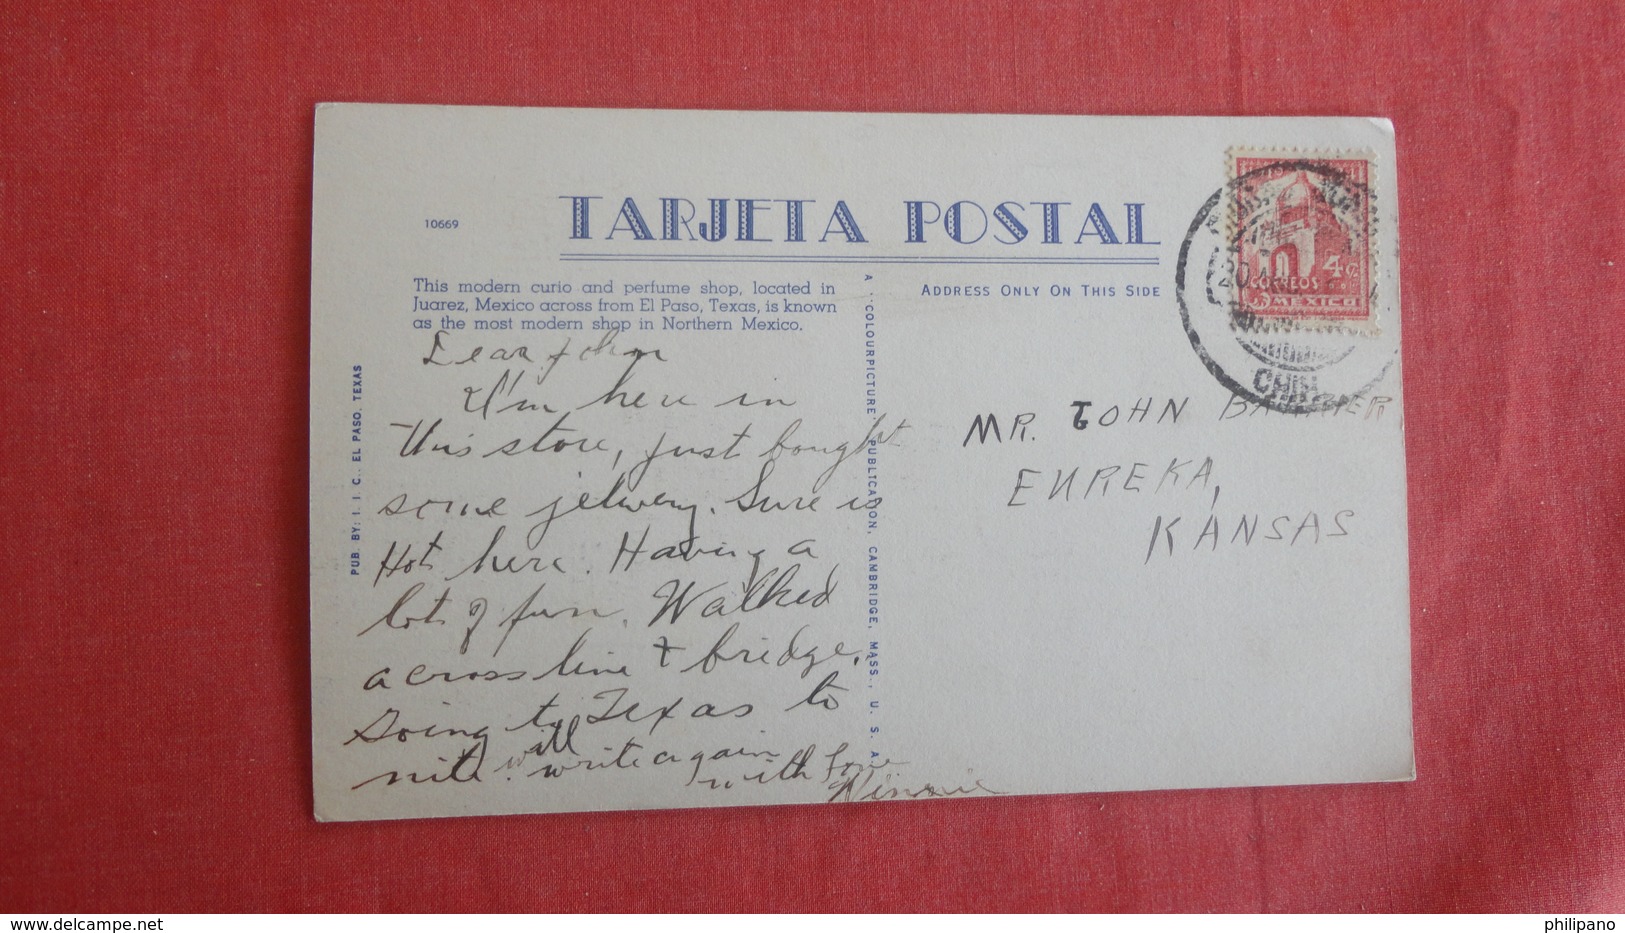 TARJETA POSTAL
10669
This modern curio and perfume shop, located in
Juarez, Mexico across from El Paso, Texas, is known
as the most modern shop in Northern Mexico.
ADDRESS ONLY ON THIS SIDE
A "COLOURPICTURE" PUBLICATION, CAMBRIDGE, MASS., U. S. A.
PUB. BY: I. I. C., EL PASO, TEXAS
Dear John
I'm here in
this store, just bought
some jelwery. Sure is
Hot here. Having a
lots of fun. Walked
across line & bridge.
Going to Texas to
nite. will write again
with love
Winnie
MR. JOHN
EUREKA,
KANSAS
4¢
CORREOS
MEXICO
CHIH.
delcampe.net
philipano